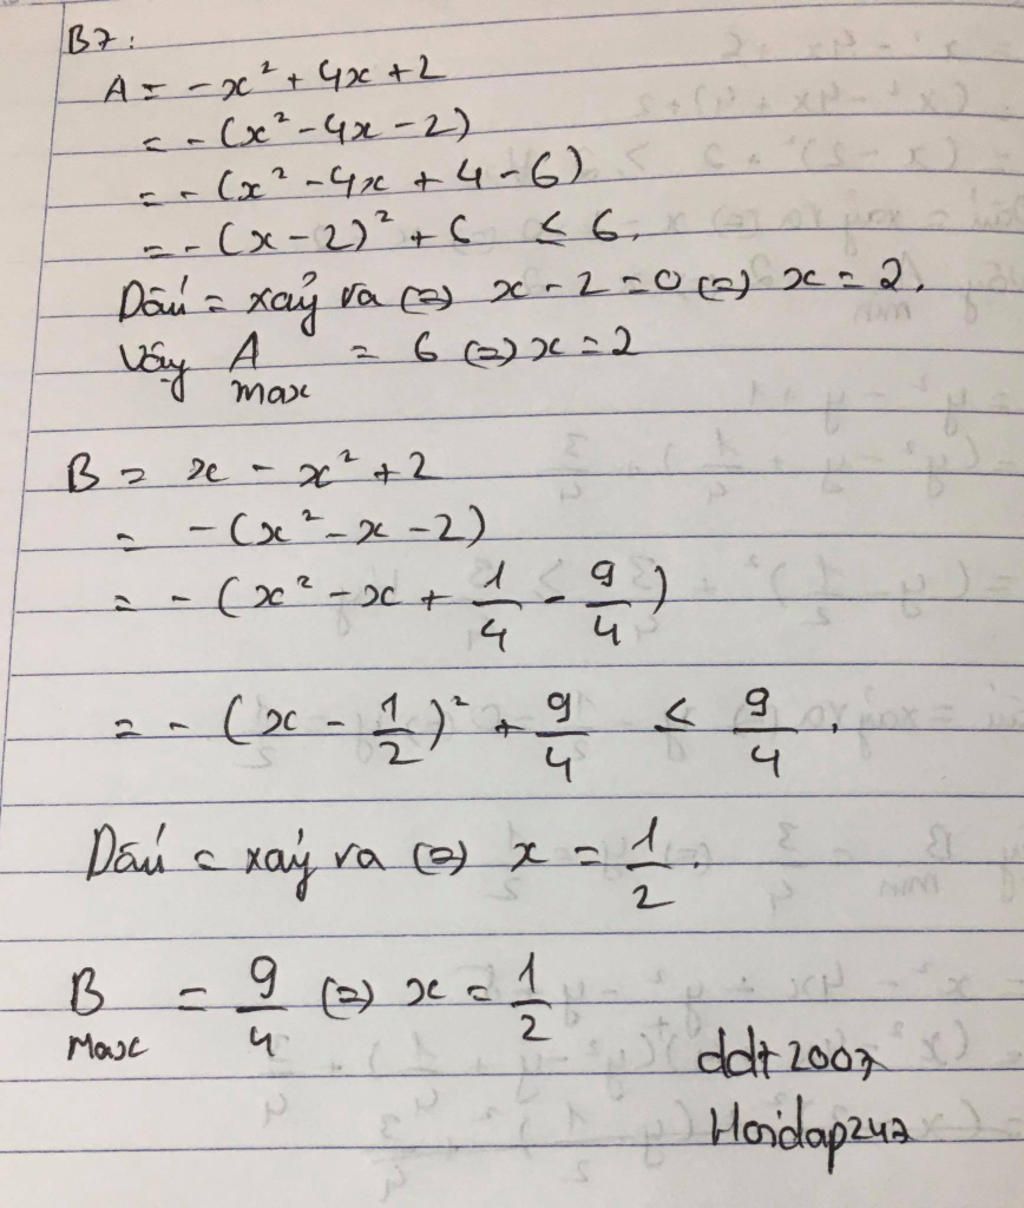 B7:
A = -x² + 4x + 2
= -(x² - 4x - 2)
= -(x² - 4x + 4 - 6)
= -(x - 2)² + 6 ≤ 6.
Dấu = xảy ra (=) x - 2 = 0 (=) x = 2.
Vậy A max = 6 (=) x = 2
B = x - x² + 2
= -(x² - x - 2)
= -(x² - x + 1/4 - 9/4)
= -(x - 1/2)² + 9/4 ≤ 9/4.
Dấu = xảy ra (=) x = 1/2.
B Max = 9/4 (=) x = 1/2
ddt2007
Hoidap247